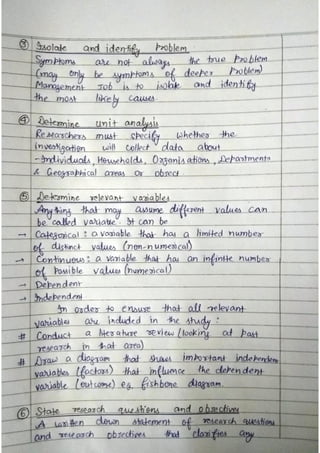 ③ Isolate and identify Problem
Symptoms are not always the true Problem
(may only be symptoms of deeper Problem)
Management Job is to isolate and identify
the most likely causes.
④ Determine unit analysis
Researchers must specify whether the
investigation will collect data about
- Individuals, Households, Organisations, Departments
& Geographical areas or object
⑤ Determine relevant variables
Anything that may assume different values can
be called variable. It can be
→ Categorical : a variable that has a limited number
of distinct values (non-numerical)
→ Continuous : a variable that has an infinite number
of Possible values (numerical)
→ Dependent
→ Independent
In order to ensure that all relevant
variables are included in the study :
# Conduct a literature review (looking at past
research in that area)
# Draw a diagram that shows important independent
variables (factors) that influence the dependent
variable (outcome) eg. fishbone diagram.
⑥ State research questions and objectives
A written down statement of research questions
and research objectives that clarifies any